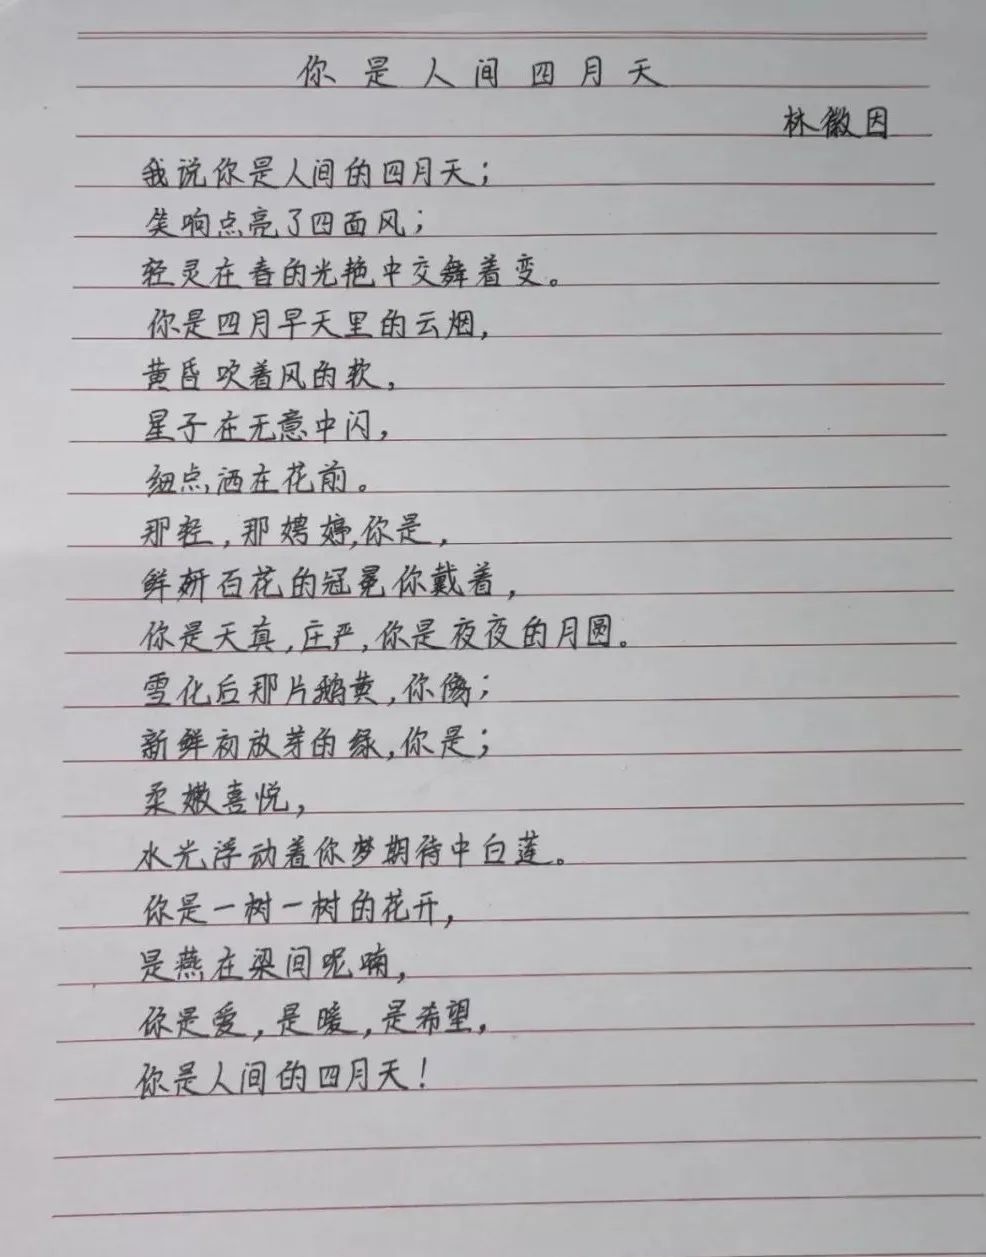 你是人间四月天
林徽因
我说你是人间的四月天；
笑响点亮了四面风；
轻灵在春的光艳中交舞着变。
你是四月早天里的云烟，
黄昏吹着风的软，
星子在无意中闪，
细点洒在花前。
那轻，那娉婷，你是，
鲜妍百花的冠冕你戴着，
你是天真，庄严，你是夜夜的月圆。
雪化后那片鹅黄，你像；
新鲜初放芽的绿，你是；
柔嫩喜悦，
水光浮动着你梦期待中白莲。
你是一树一树的花开，
是燕在梁间呢喃，
你是爱，是暖，是希望，
你是人间的四月天！